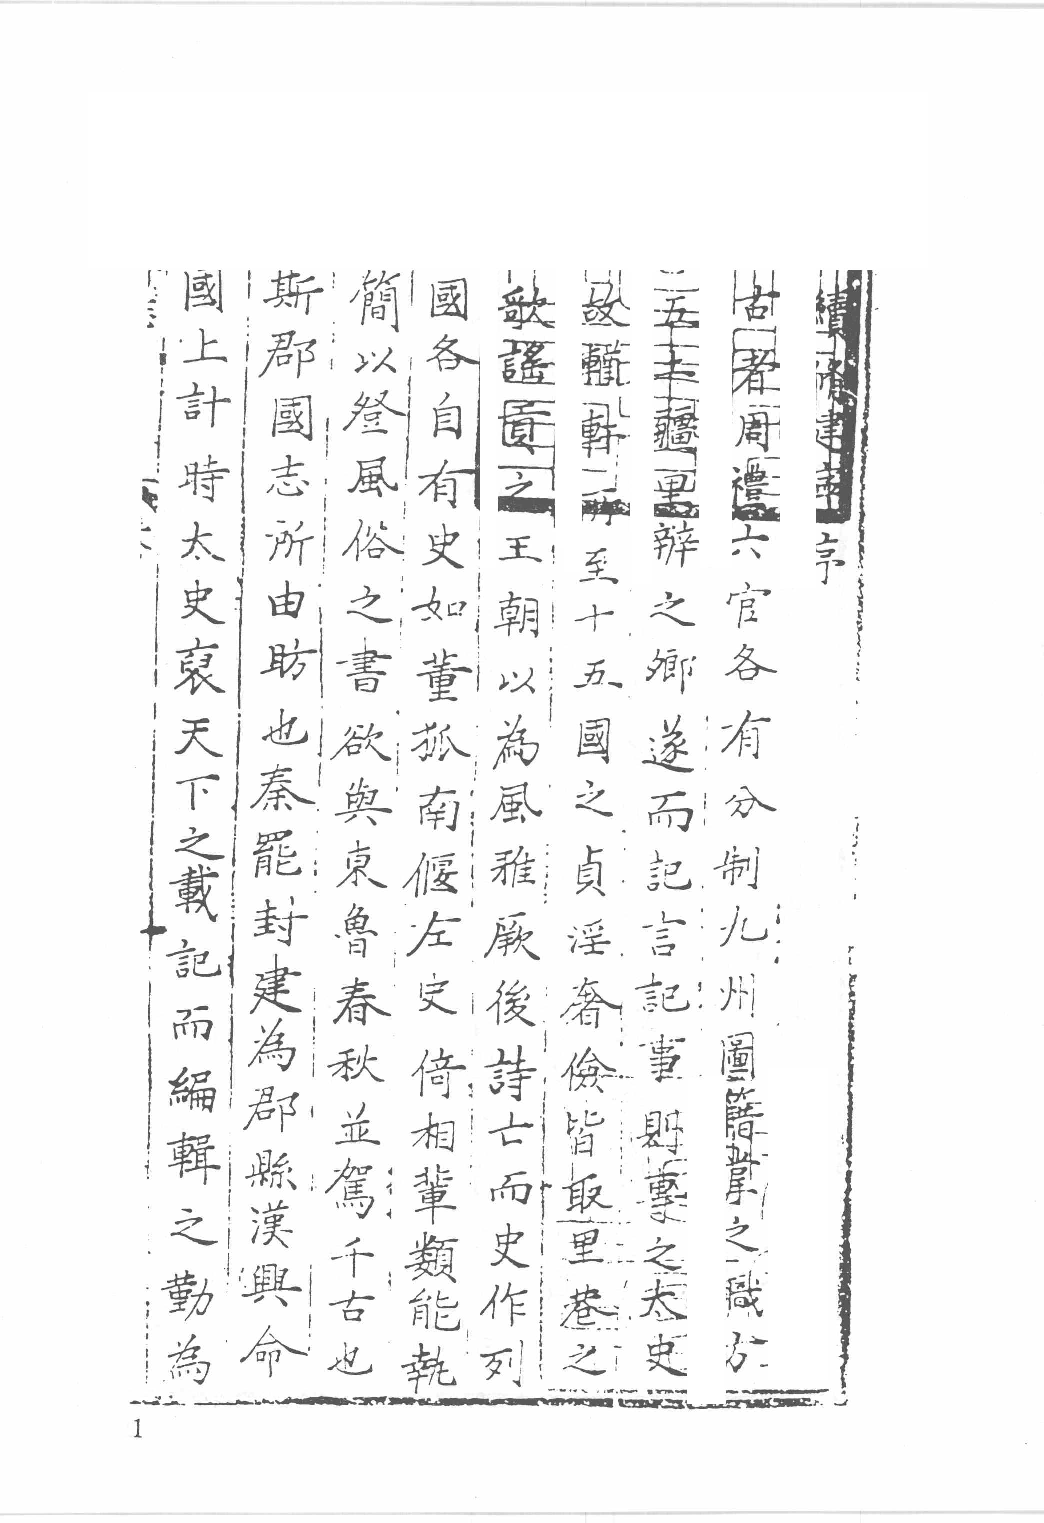 續脩建寧序
古者周禮六官各有分制九州圖籍掌之職方
五土疆里辧之鄉遂而記言記事則專之太史
故輶軒所至十五國之貞淫奢儉皆取里巷之
歌謠貢之王朝以為風雅厥後詩亡而史作列
國各自有史如董狐南偃左史倚相輩類能執
簡以登風俗之書欲與東魯春秋並駕千古也
斯郡國志所由昉也秦罷封建為郡縣漢興命
國上計時太史裒天下之載記而編輯之勤為
1